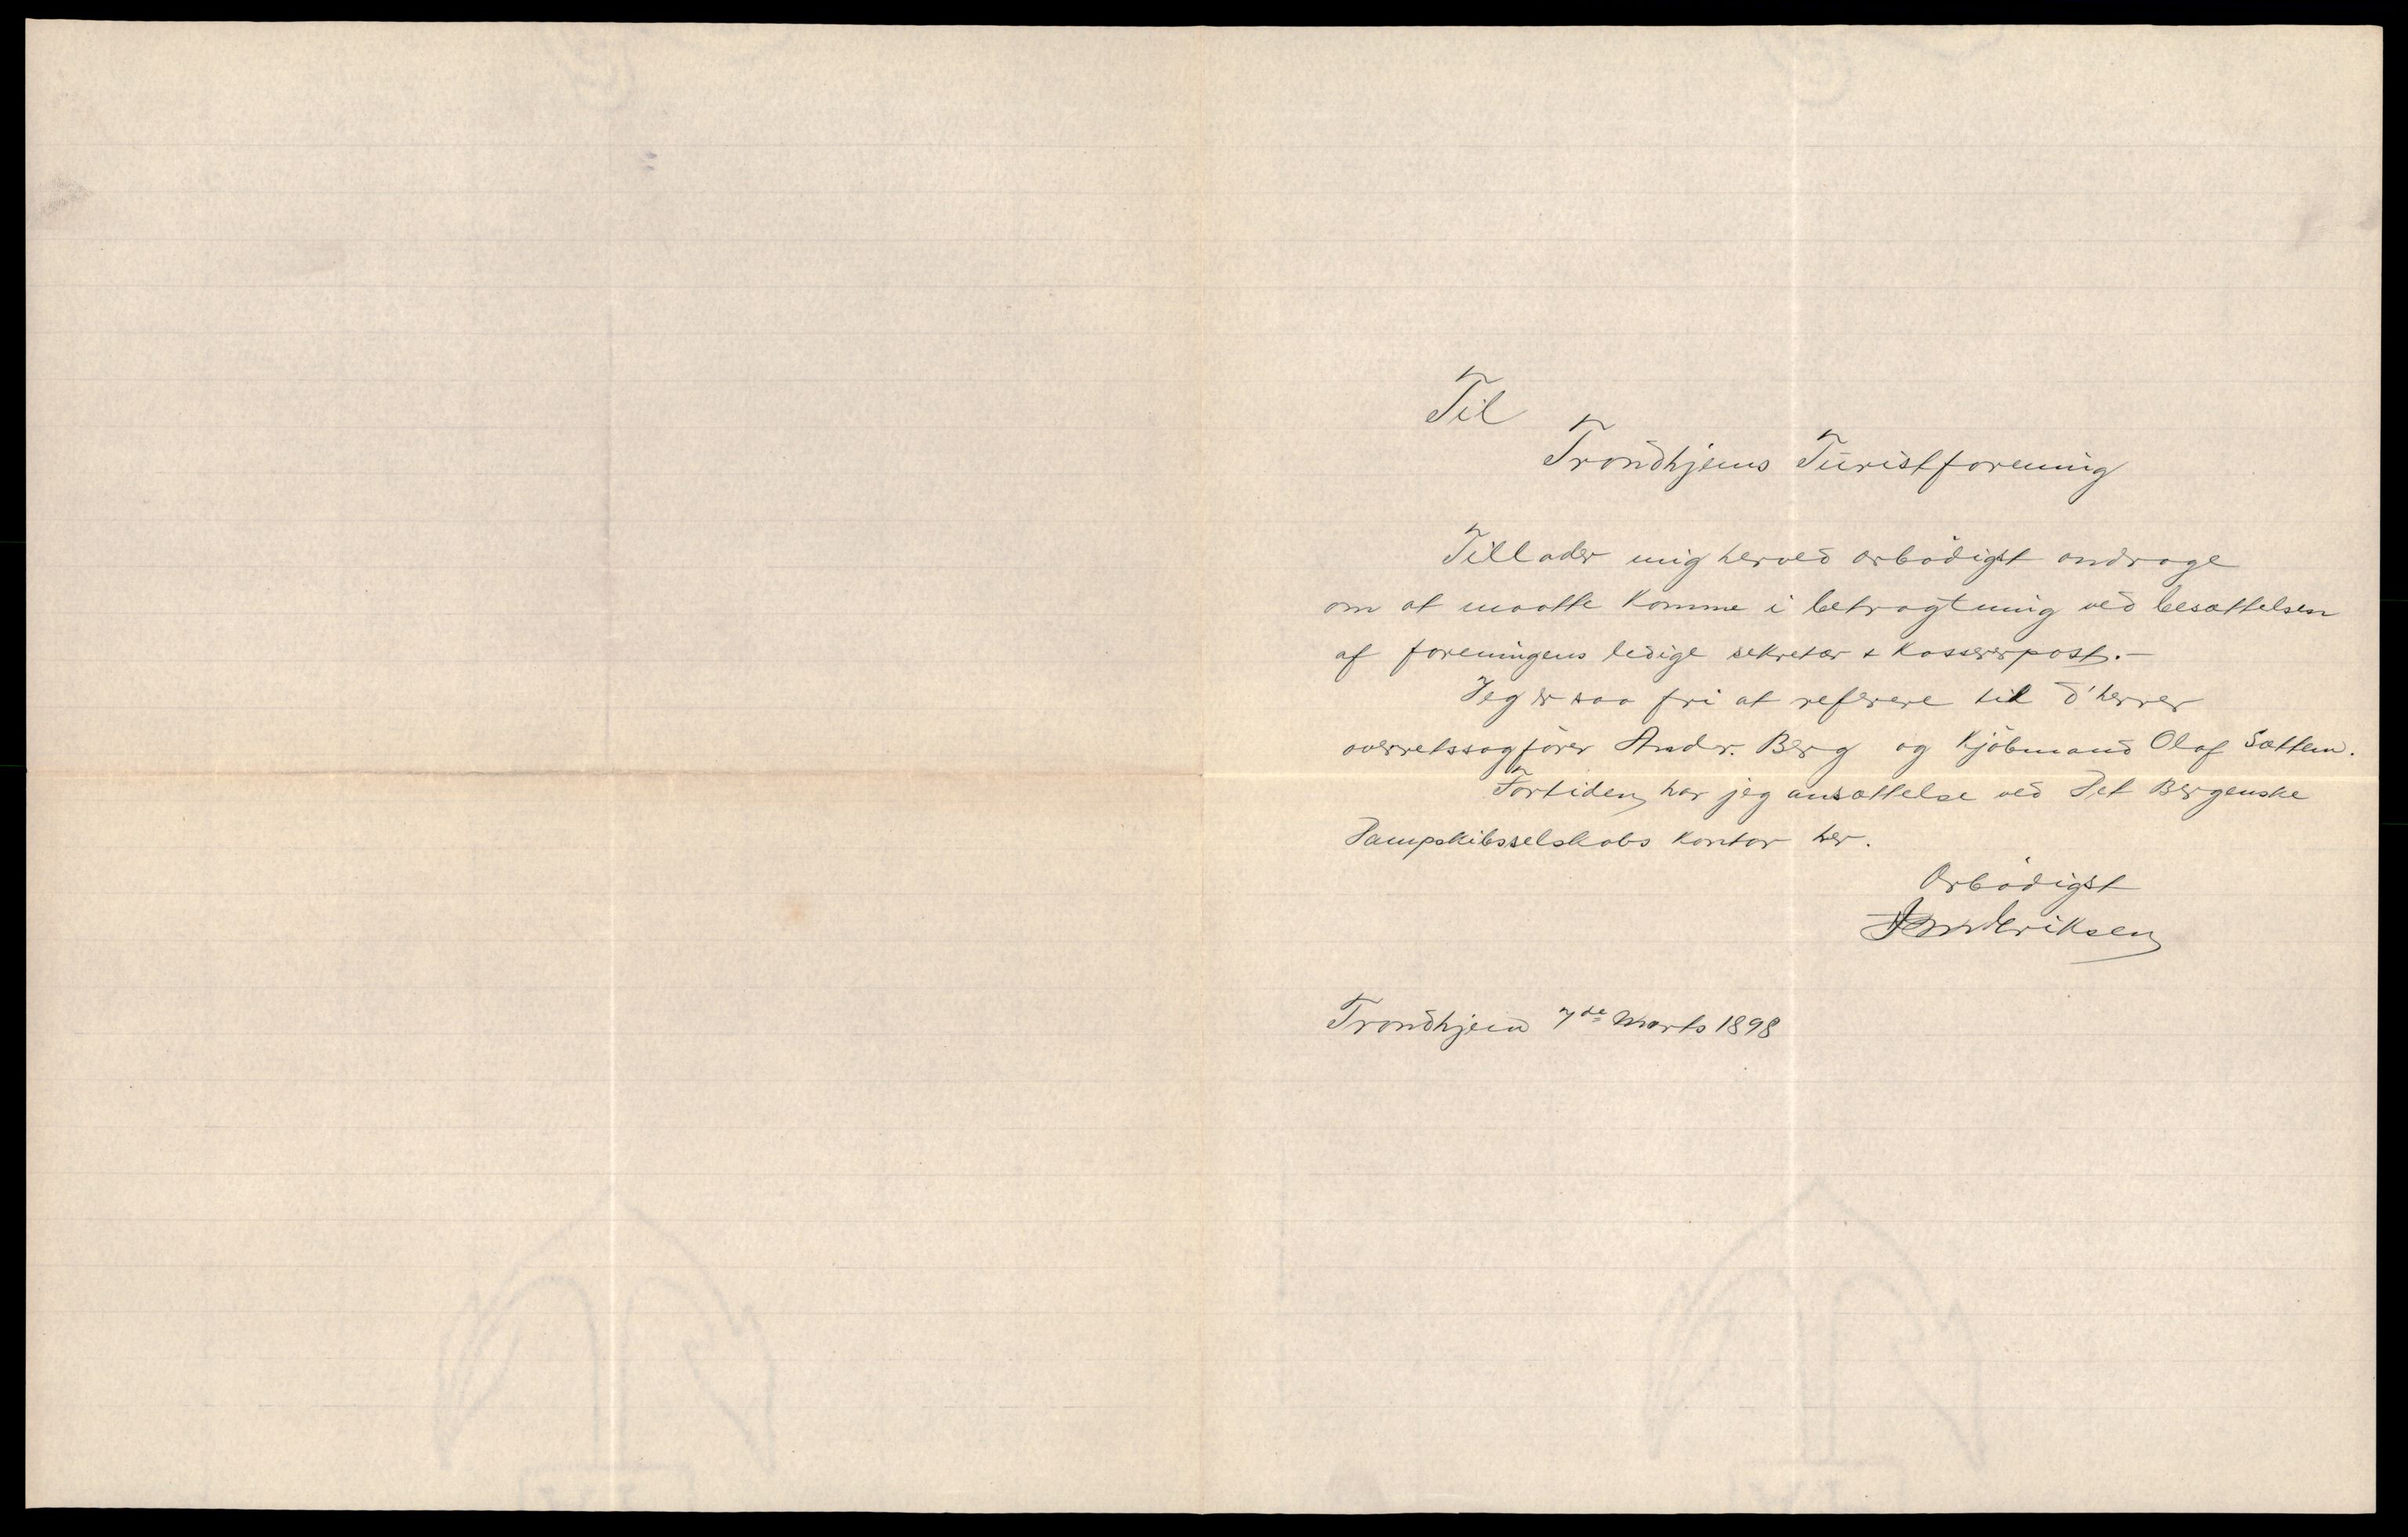 Til
Trondhjems Turistforening
Tillader mig herved ærbödigst andrage
om at maatte komme i betragtning ved besættelsen
af foreningens ledige sekretær & kassererpost.—
Jeg er saa fri at referere til d'herrer
overretssagförer Andr. Berg og Kjöbmand Olaf Sættem.
Fortiden har jeg ansættelse ved Det Bergenske
Dampskibsselskabs kontor her.
Ærbödigst
Eriksen
Trondhjem 7de Marts 1898